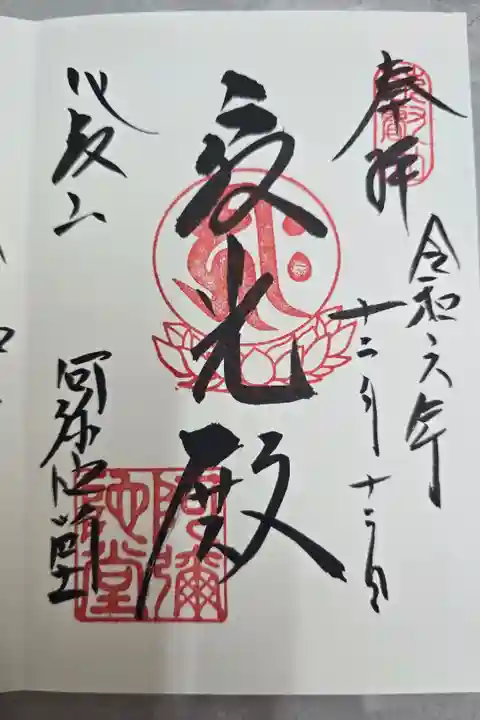 奉拝
令和六年
十二月十二日
受光殿
比叡山
阿弥陀堂
阿彌陀堂